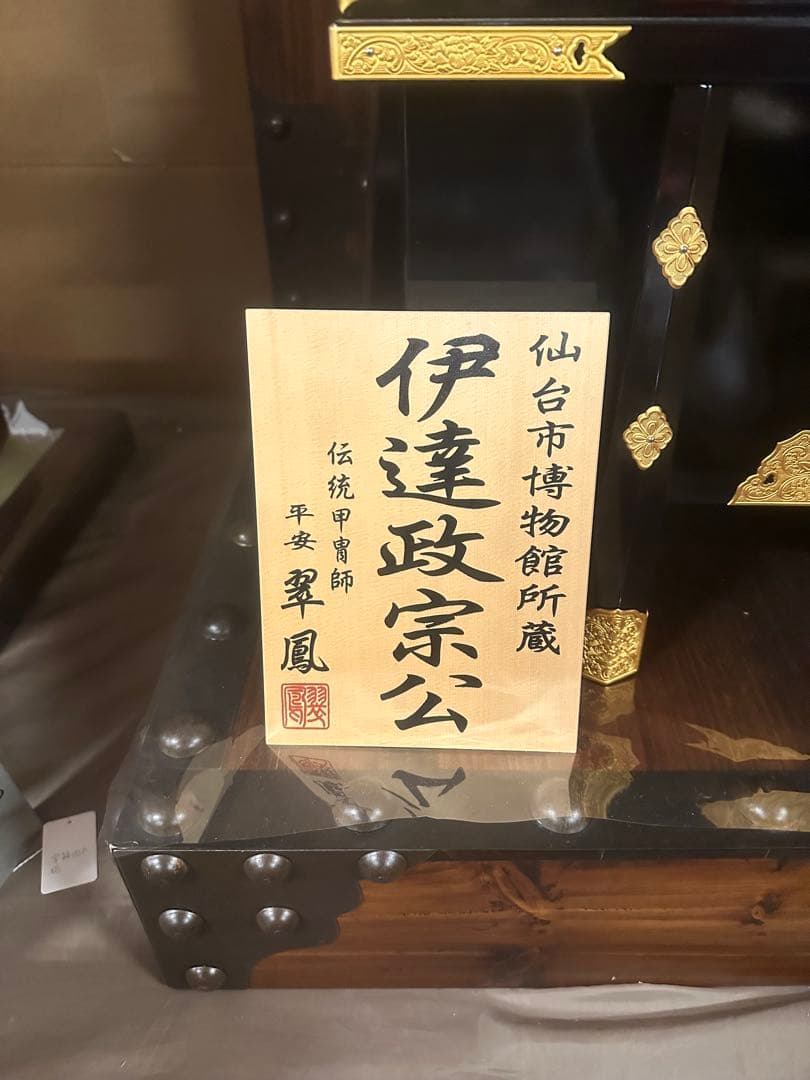 仙台市博物館所蔵
伊達政宗公
伝統甲冑師
平安 翠鳳